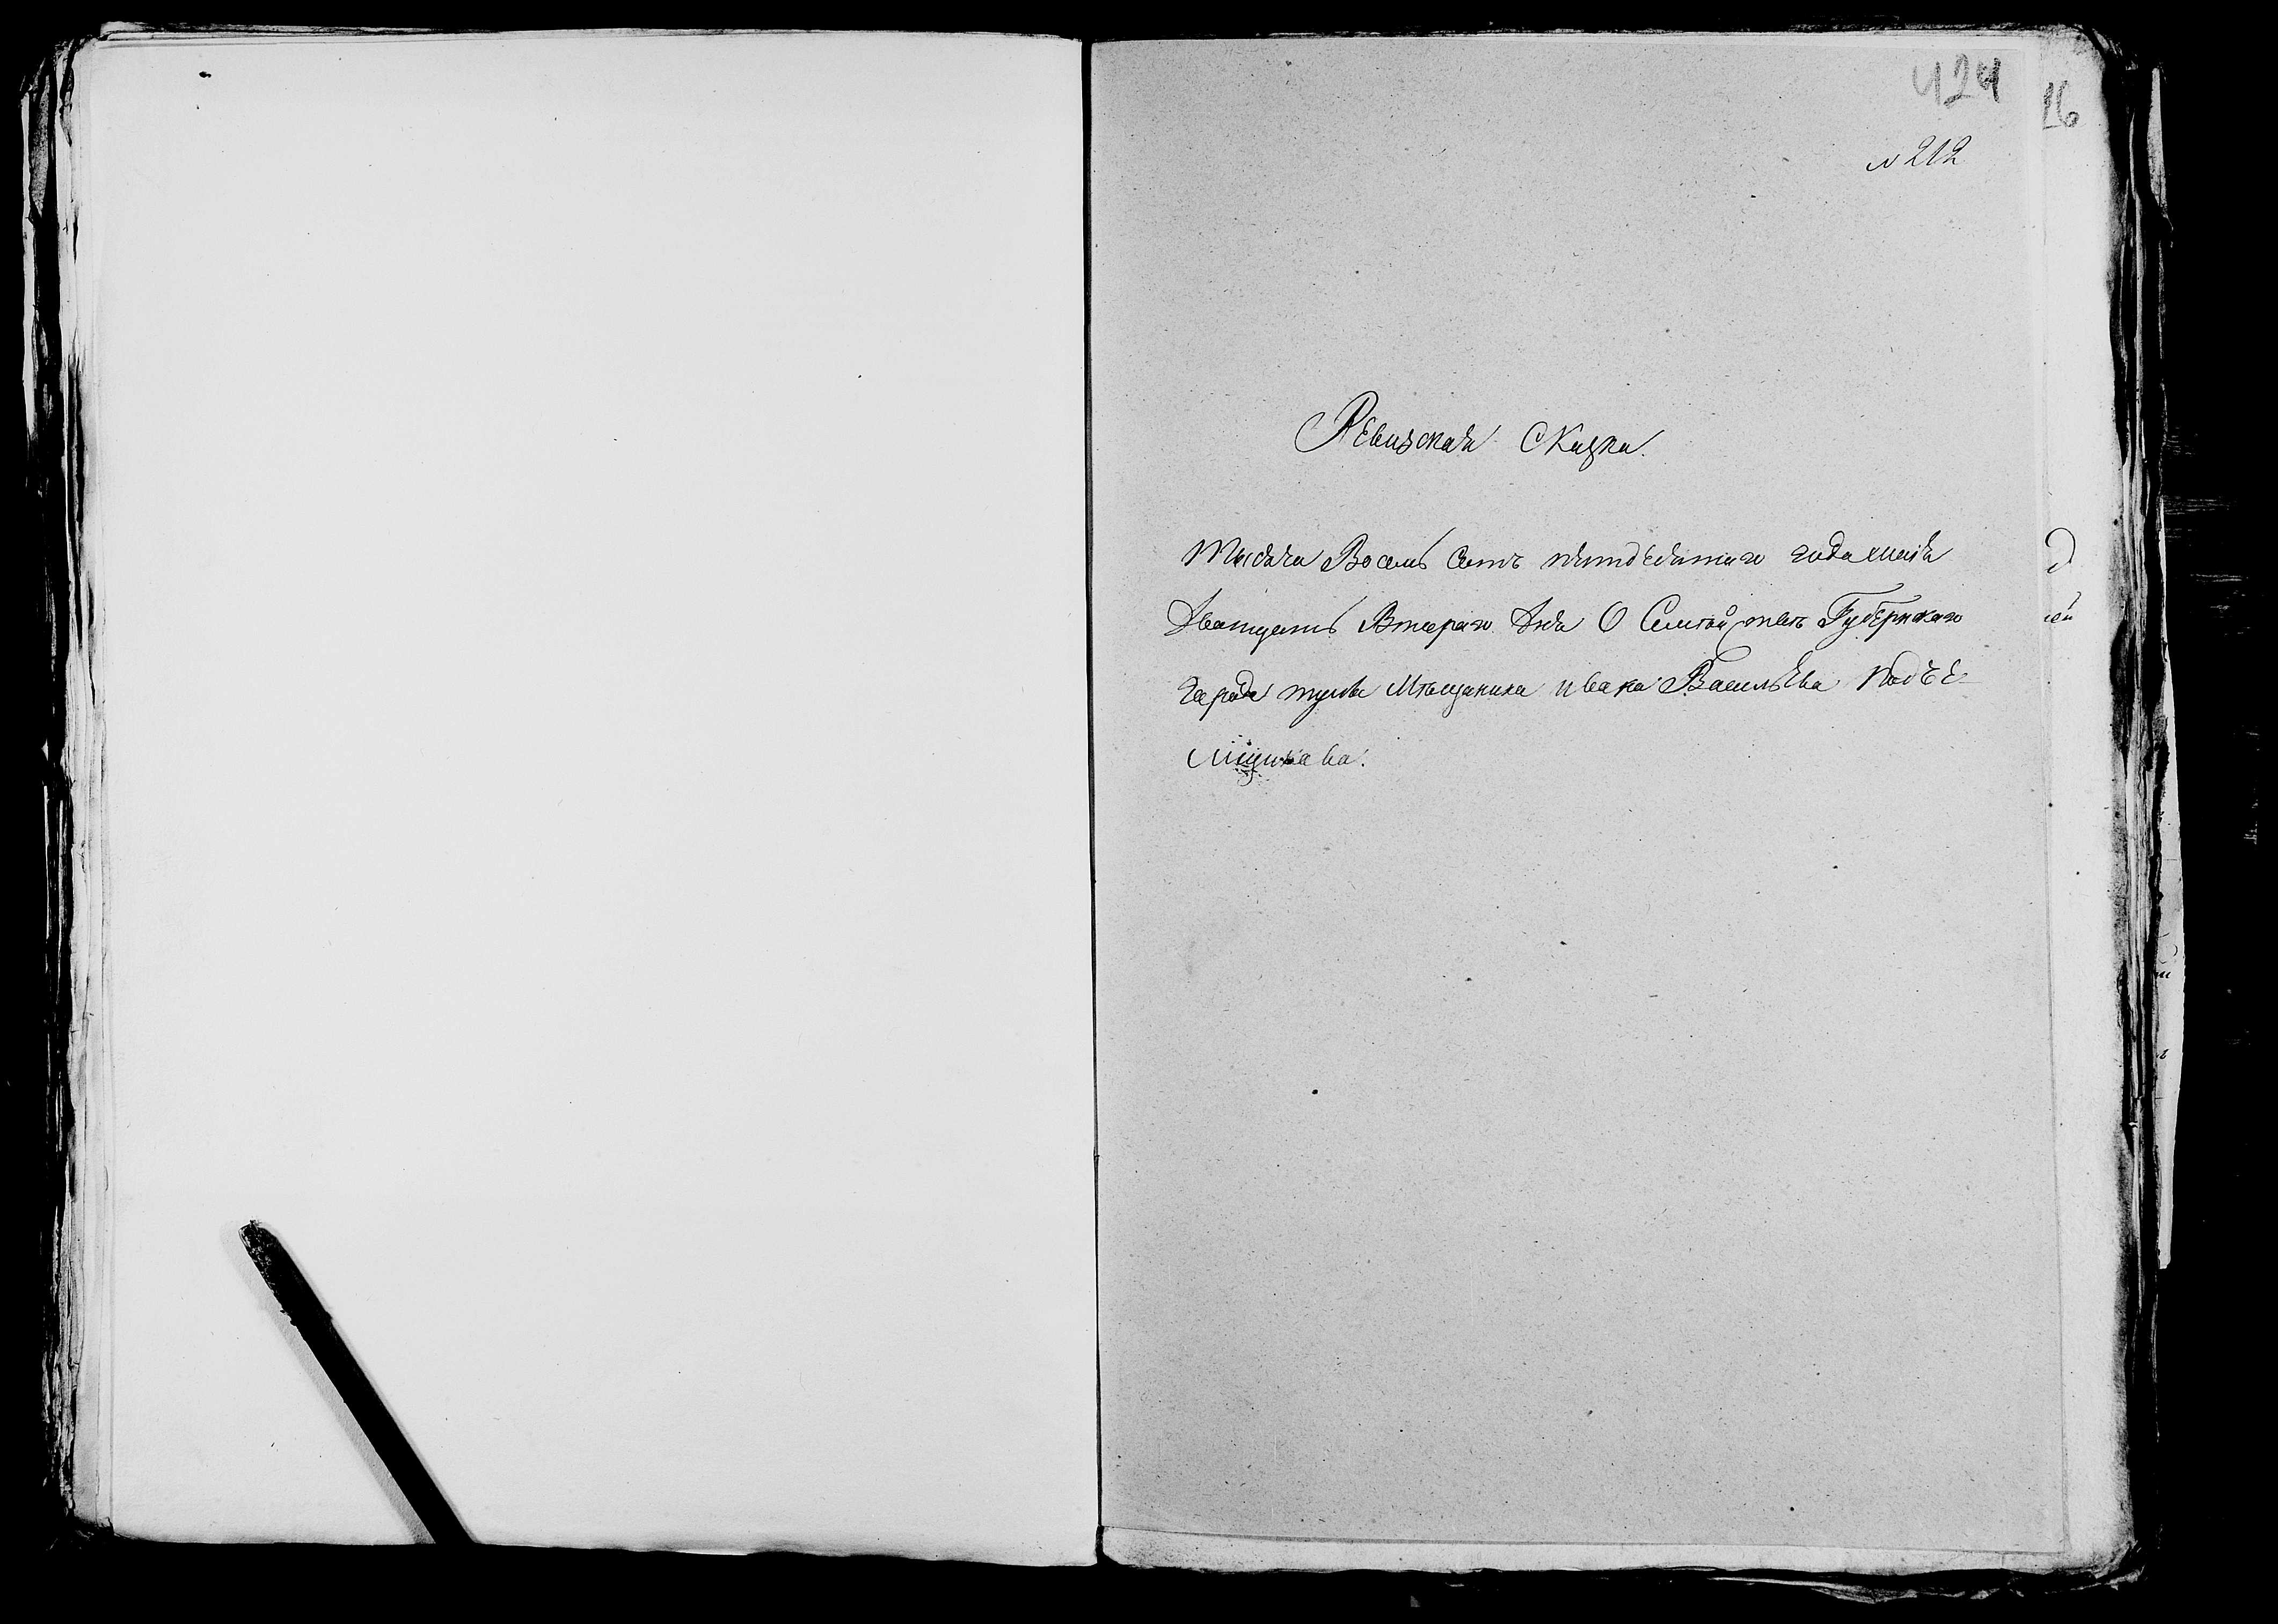 424
16
N 212
Ревизская Сказка.
Тысяча Восемь Сотъ пятдесятаго года маія
Дватцать Втораго дня О Семействѣ Губернскаго
города тулы Мѣщанина ивана Васильева Подъе-
мщикава.